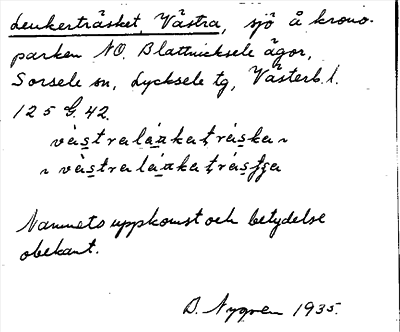 Leukerträsket, Västra, sjö å krono-
parken NO. Blattnicksele ägor,
Sorsele sn, Lycksele tg, Västerb. l.
125 G. 42.
västralå̱a̱katrä́ska ~
~ västralå̱a̱katrä́sʃʒa
Namnets uppkomst och betydelse
obekant.
D. Nygren 1935.